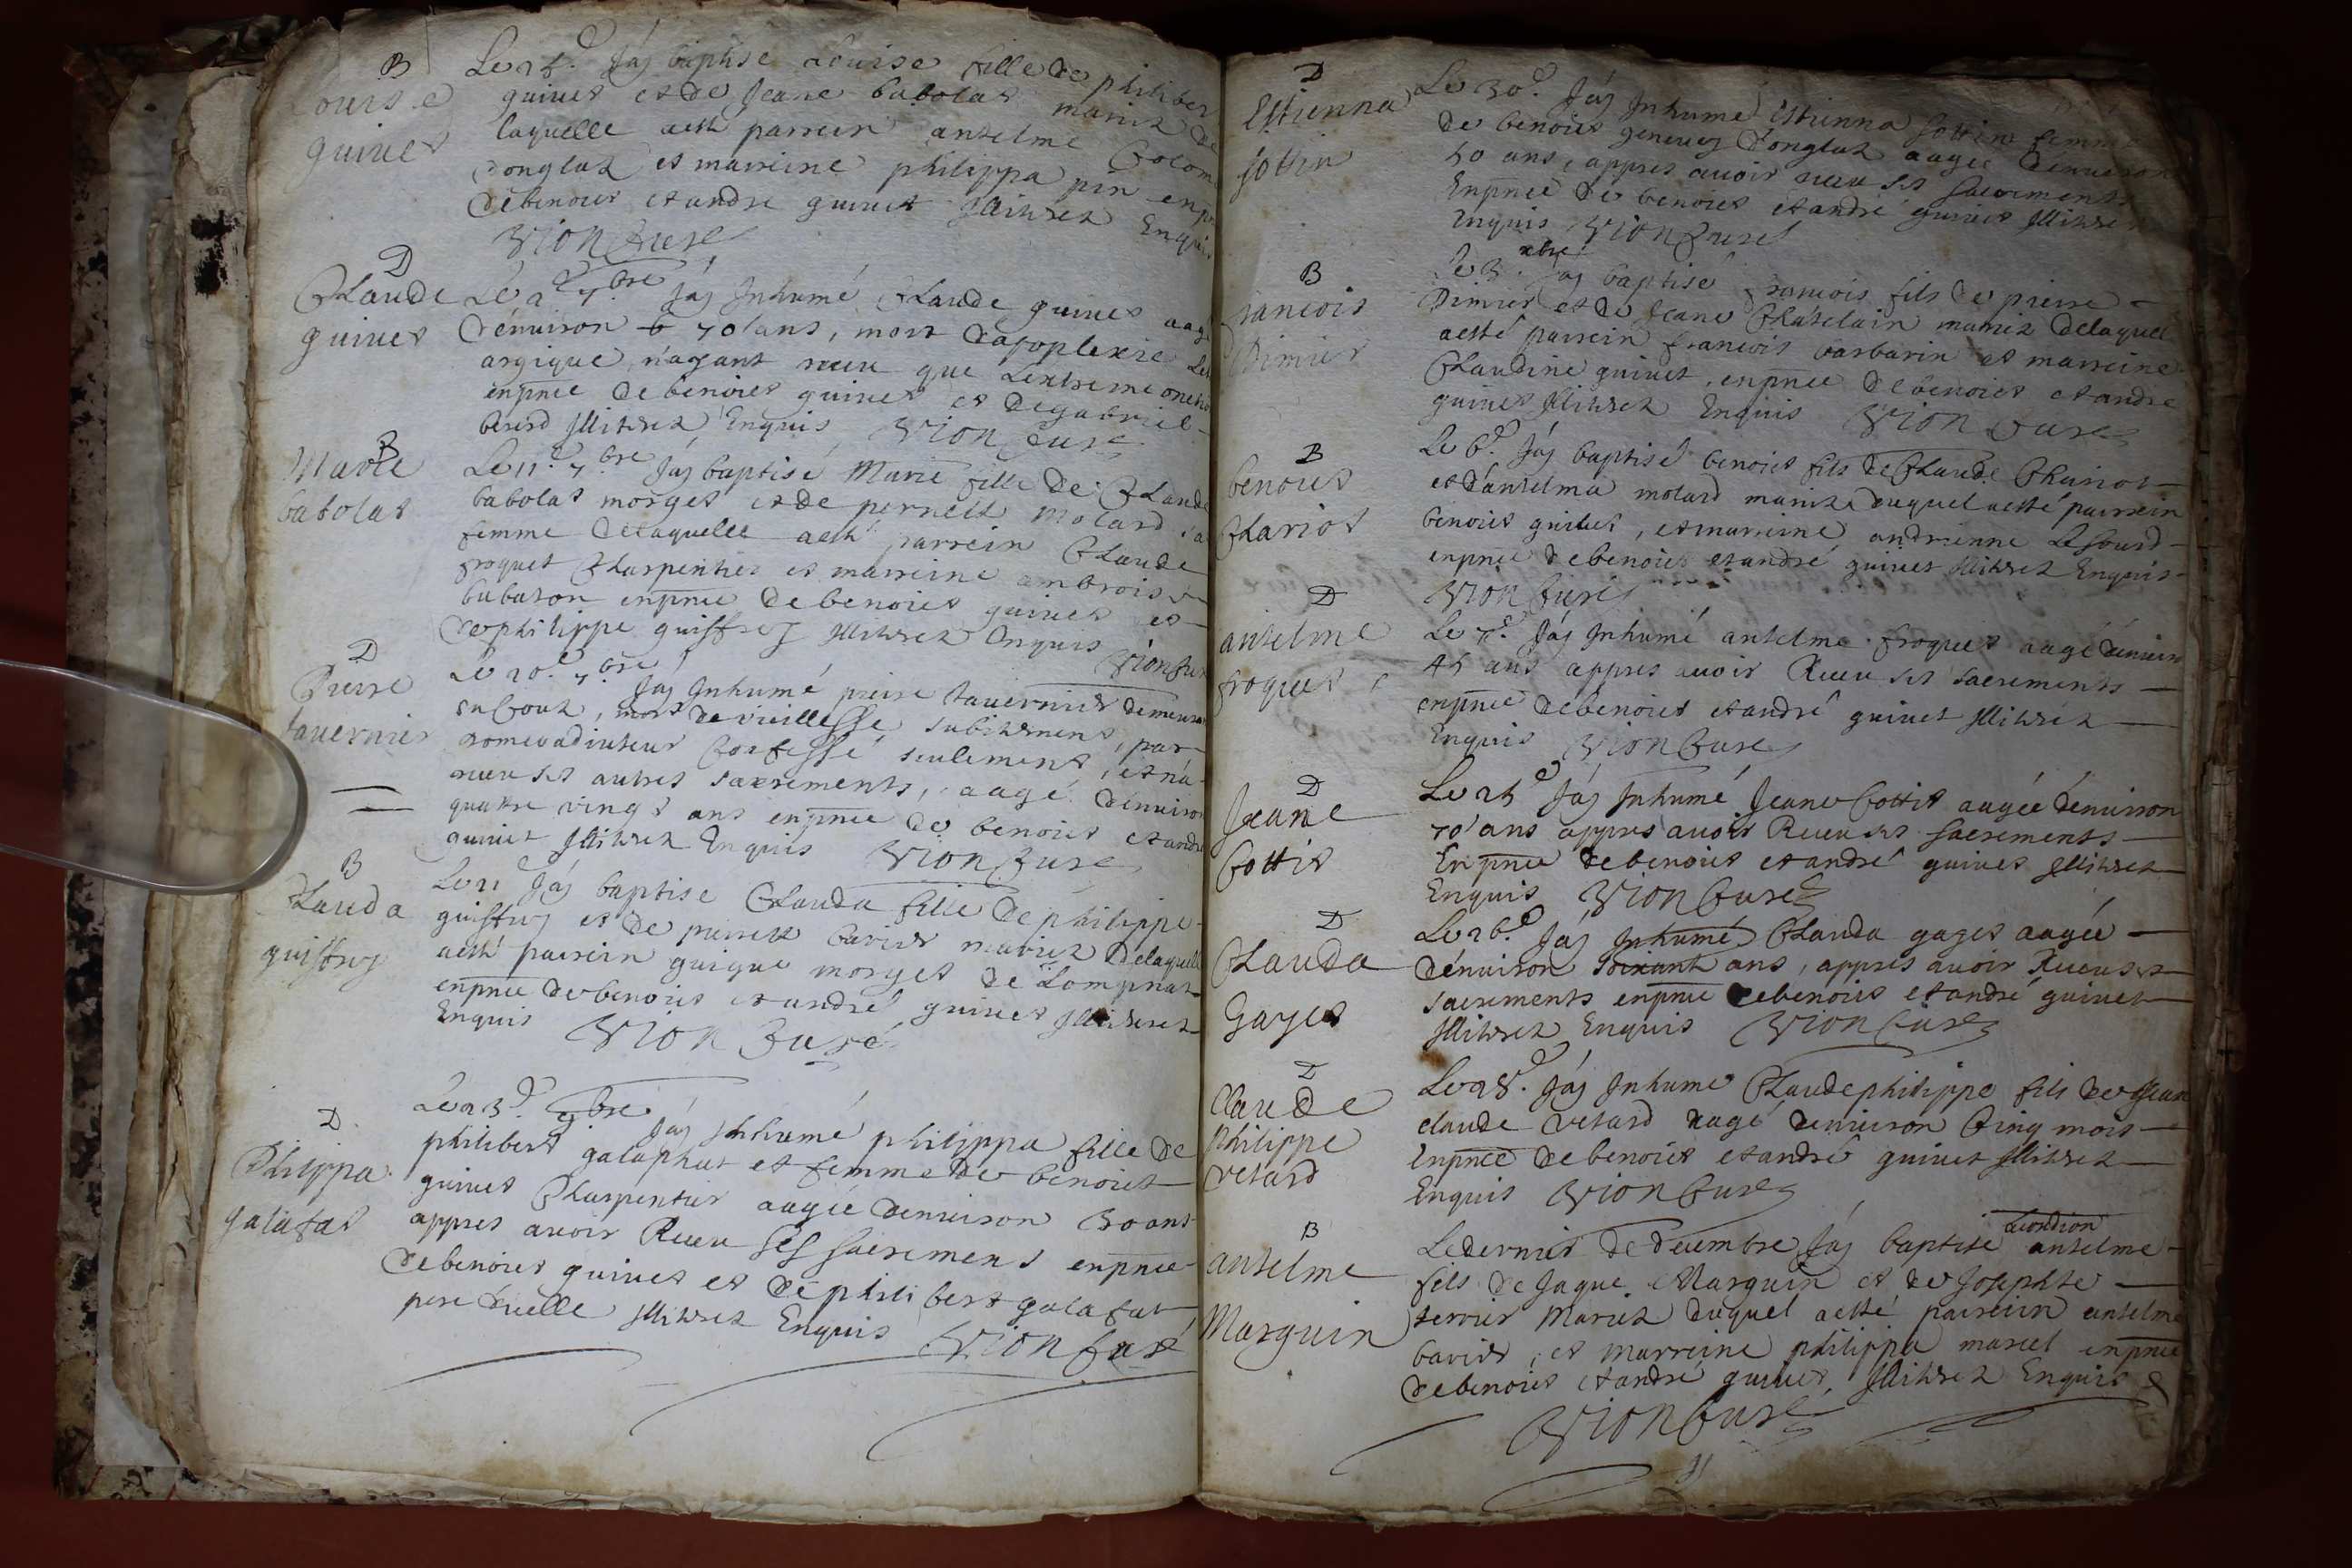 B
Louise
guinet
Le 28e. Jay baptisé Louise fille de philiber
guinet et de Jeane babolat mariez de
laquelle a esté parrein antelme Colom
donglas et marreine philippa pin enpnce
de benoict et andre guinet Illitrez Enquis
Vion Curé
D
Claude
guinet
Le 2e 7bre Jay Inhumé Claude guinet aagé
denuiron 70 ans, mort dapoplexie Let
argique, nayant receu que Lextreme onction
enpnce de benoict guinet et de gabriel
berard Illitrez Enquis Vion Curé
B
Marie
babolat
Le 11e. 7bre Jay baptisé Marie fille de Claude
babolat morget et de pernette Molard sa
femme de laquelle a esté parrein Claude
froquet Charpentier et marreine ambroise
babaron enpnce de benoict guinet et
de philippe guiffrey Illitrez Enquis
Vion Curé
D
Pierre
tauernier
Le 20e. 7bre
Jay Inhumé pierre tauernier demeurant
mort de vieillesse subitement, par
seulement, et na
receu ses autres sacrements, aagé denuiron
quattre vingt ans enpnce de benoict et andre
guinet Illitrez Enquis Vion Curé
B
Clauda
guiffrey
Le 21 Jay baptisé Clauda fille de philippe
guiffrey et de pierrette barier mariez de laquelle
a esté parrein guigue morget de Lompnas
enpnce de benoict et andré guinet Illitrez
Enquis Vion Curé
D
Philippa
galafat
Le 23e. 9bre
Jay Inhumé philippa fille de
philibert galaphat et femme de benoict
guinet Charpentier aagée denuiron 30 ans
appres auoir Receu ses sacrement enpnce
de benoict guinet et de philibert galafat
pere dicelle Illitrez Enquis
Vion Curé
D
Estienna
Jottin
Le 30e. Jay Inhumé Estienna Jottin femme
de benoict geneurey donglas aagée denuiron
50 ans, appres auoir receu ses sacrements
Enpnce de benoict et andré guinet Illitrez
Enquis Vion Curé
B
francois
Dimier
Le 3. xbre Jay baptisé francois fils de pierre
Dimier et de Jeane Chatelain mariez de laquel
a esté parrein francois barbarin et marreine
Claudine guinet, enpnce de benoict et andre
guinet Illitrez Enquis Vion Curé
B
benoict
Chariot
Le 6e. Jay baptisé benoict fils de Claude Chariot
et dantelma molard mariez duquel a esté parrein
benoict guinet, et marreine andrienne Lesourd
enpnce de benoict et andré guinet Illitrez Enquis
Vion Curé
D
antelme
froquet
Le 7e. Jay Inhumé antelme froquet aagé denuiron
45 ans appres auoir Receu ses sacrements
enpnce de benoict et andré guinet Illitrez
Enquis Vion Curé
D
Jeane
Cottit
Le 25e Jay Inhumé Jeane Cottit aagée denuiron
70 ans appres auoir Receu ses sacrements
Enpnce de benoict et andré guinet Illitrez
Enquis Vion Curé
D
Clauda
Gaget
Le 26e. Jay Inhumé Clauda gaget aagée
denuiron soixante ans, appres auoir Receu ses
sacrements enpnce de benoict et andré guinet
Illitrez Enquis Vion Curé
D
Claude
philippe
vetard
Le 28e. Jay Inhumé Claude philippe fils de Jean
claude vetard aagé denuiron Cinq mois
Enpnce de benoict et andré guinet Illitrez
Enquis Vion Curé
B
antelme
Marguin
Le dernier de decembre Jay baptisé antelme
fils de Jaque Marguin et de Josephte
terrier Mariez duquel a esté parrein antelme
barier, et marreine philippa marcel enpnce
de benoict et andré guinet, Illitrez Enquis
Vion Curé